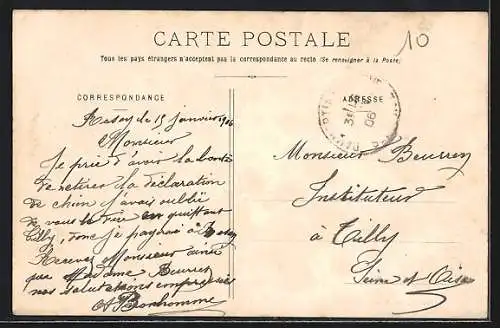 CARTE POSTALE
10
Tous les pays étrangers n'acceptent pas la correspondance au recto (Se renseigner à la Poste)
CORRESPONDANCE
Rosay du 15 janvier 1906
Monsieur
Je prie d'avoir la bonté
de retirer la déclaration
de chien j'avais oublié
de vous le dire en quittant
Tilly, donc je payerai à Rosay
Recevez Monsieur ainsi
que Madame Beurrey
nos salutations empressées
Bonhomme
ADRESSE
06
Monsieur Beurrey
Instituteur
à Tilly
Seine et Oise